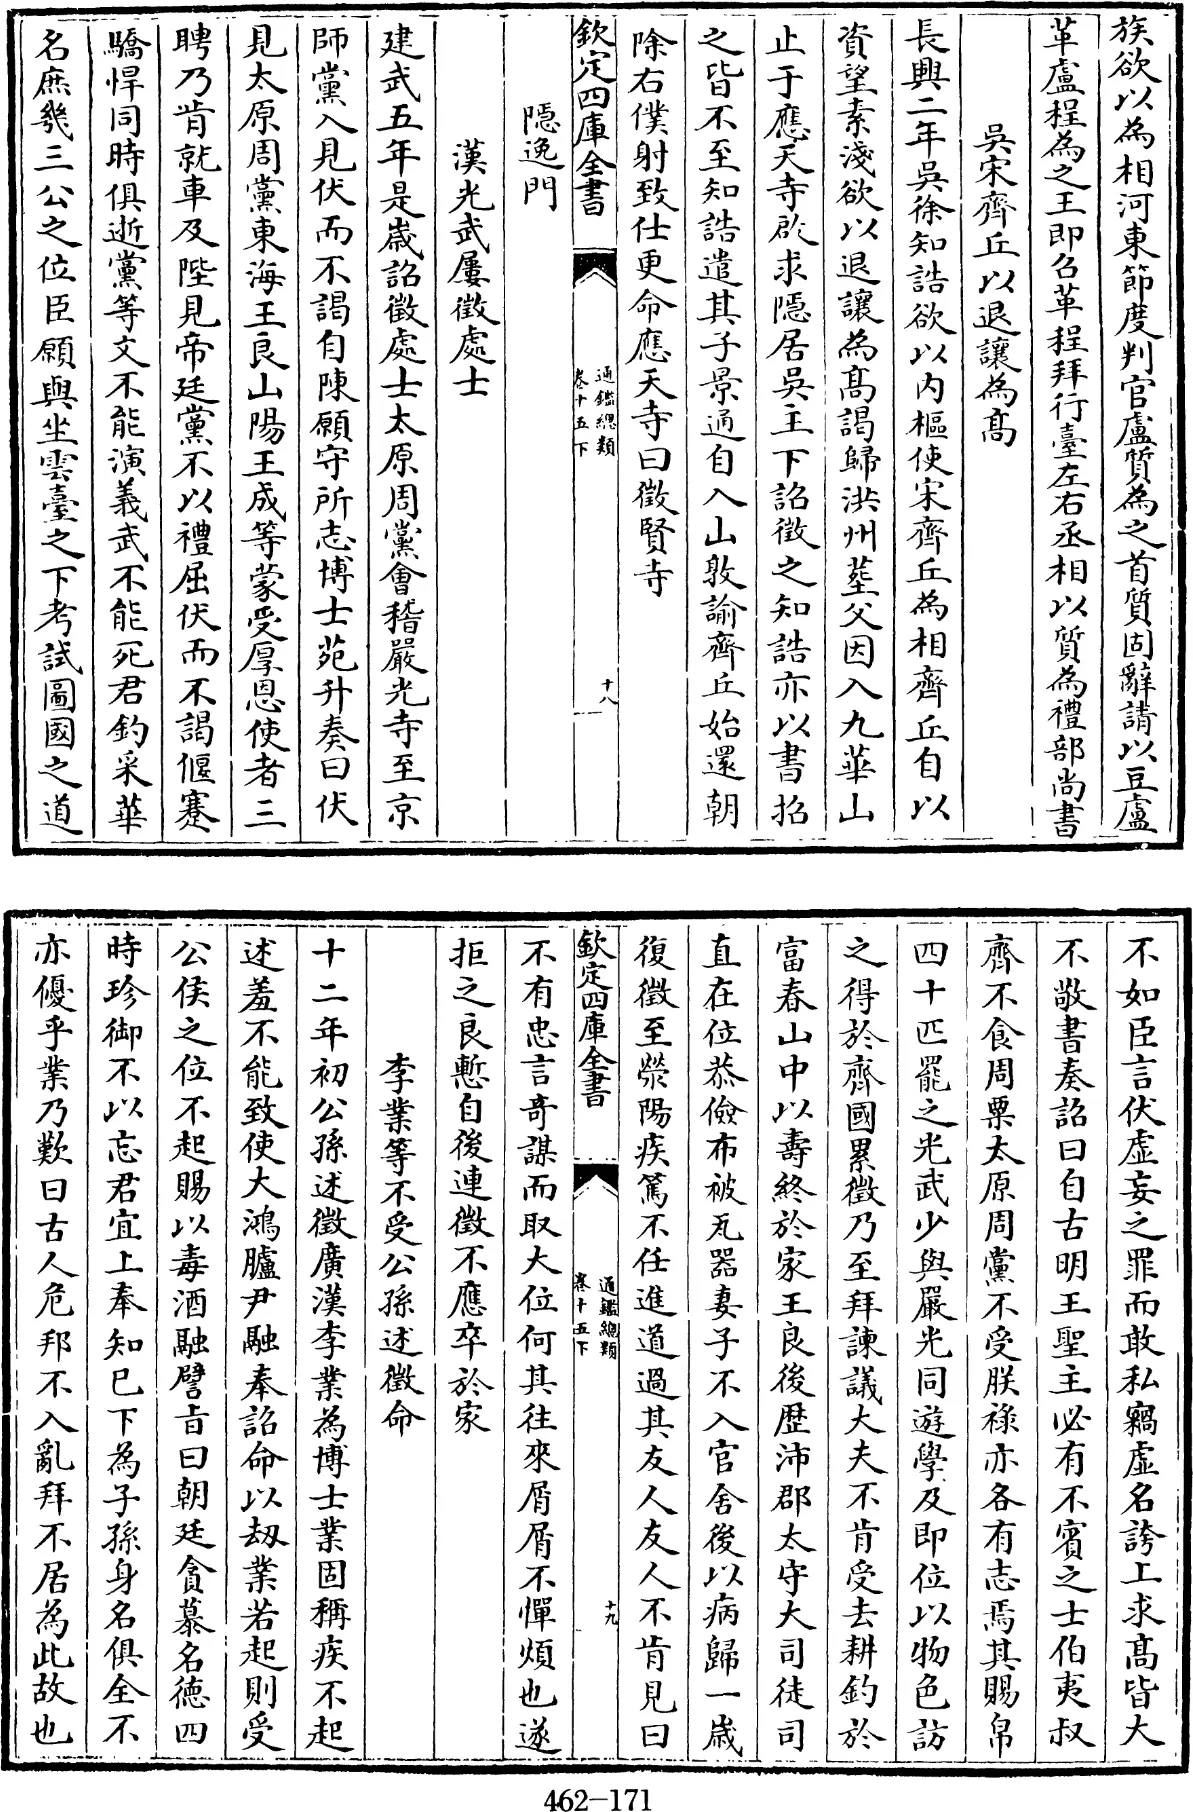 族欲以為相河東節度判官盧質為之首質固辭請以豆盧
革盧程為之王即召革程拜行臺左右丞相以質為禮部尚書
吳宋齊丘以退讓為高
長興二年吳徐知誥欲以内樞使宋齊丘為相齊丘自以
資望素淺欲以退讓為髙謁歸洪州葬父因入九華山
止于應天寺啟求隱居吳主下詔徵之知誥亦以書招
之皆不至知誥遣其子景通自入山敦諭齊丘始還朝
除右僕射致仕更命應天寺曰徵賢寺
欽定四庫全書
通鑑總類
卷十五下
十八
隱逸門
漢光武屢徵處士
建武五年是歲詔徵處士太原周黨會稽嚴光寺至京
師黨入見伏而不謁自陳願守所志博士范升奏曰伏
見太原周黨東海王良山陽王成等蒙受厚恩使者三
聘乃肯就車及陛見帝廷黨不以禮屈伏而不謁偃蹇
驕悍同時俱逝黨等文不能演義武不能死君釣采華
名庶幾三公之位臣願與坐雲臺之下考試圖國之道
不如臣言伏虛妄之罪而敢私竊虛名誇上求髙皆大
不敬書奏詔曰自古明王聖主必有不賓之士伯夷叔
齊不食周粟太原周黨不受朕祿亦各有志焉其賜帛
四十匹罷之光武少與嚴光同遊學及即位以物色訪
之得於齊國累徵乃至拜諫議大夫不肯受去耕釣於
富春山中以壽終於家王良後歴沛郡太守大司徒司
直在位恭儉布被瓦器妻子不入官舍後以病歸一歲
復徵至滎陽疾篤不任進道過其友人友人不肯見曰
欽定四庫全書
通鑑總類
卷十五下
十九
不有忠言奇謀而取大位何其往來屑屑不憚煩也遂
拒之良慙自後連徵不應卒於家
李業等不受公孫述徵命
十二年初公孫述徵廣漢李業為博士業固稱疾不起
述羞不能致使大鴻臚尹融奉詔命以刼業若起則受
公侯之位不起賜以毒酒融譬旨曰朝廷貪慕名德四
時珍御不以忘君宜上奉知已下為子孫身名俱全不
亦優乎業乃歎曰古人危邦不入亂拜不居為此故也
462-171